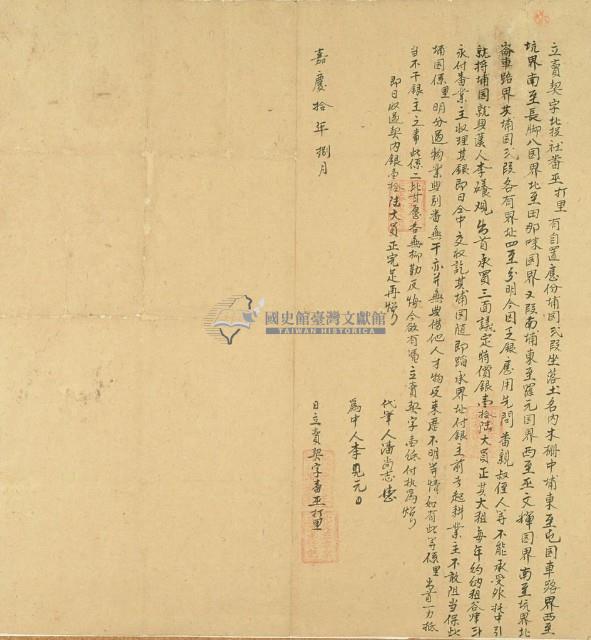 立賣契字北投社番巫打里有自置應份埔園貳段坐落土名內木柵中埔東至屯園車路界西至
坑界南至長脚八園界北至田那味園界又段南埔東至羅元園界西至巫文輝園界南至坑界北
崙車路界其埔園貳段各有界址四至分明今因乏銀應用先問番親叔侄人等不能承受外托中引
就將埔園就與漢人李議觀出首承買三面議定時價銀壹拾陸大員正其大租每年約納租谷肆斗
永付番業主收理其銀即日仝中交收訖其埔園隨即踏承界址付銀主前去起耕業主不敢阻当保此
埔園係里明分過物業與別番無干亦并無典借他人才物及来歷不明等情如有此等係里出首一力抵
当不干銀主之事此係二比甘愿各無抑勒反悔今欲有凴立賣契字壹紙付执為炤
即日收過契內銀壹拾陸大員正完足再炤
代筆人潘尚志
為中人李見元
嘉慶拾年捌月 日立賣契字番巫打里
國史館臺灣文獻館
TAIWAN HISTORICA